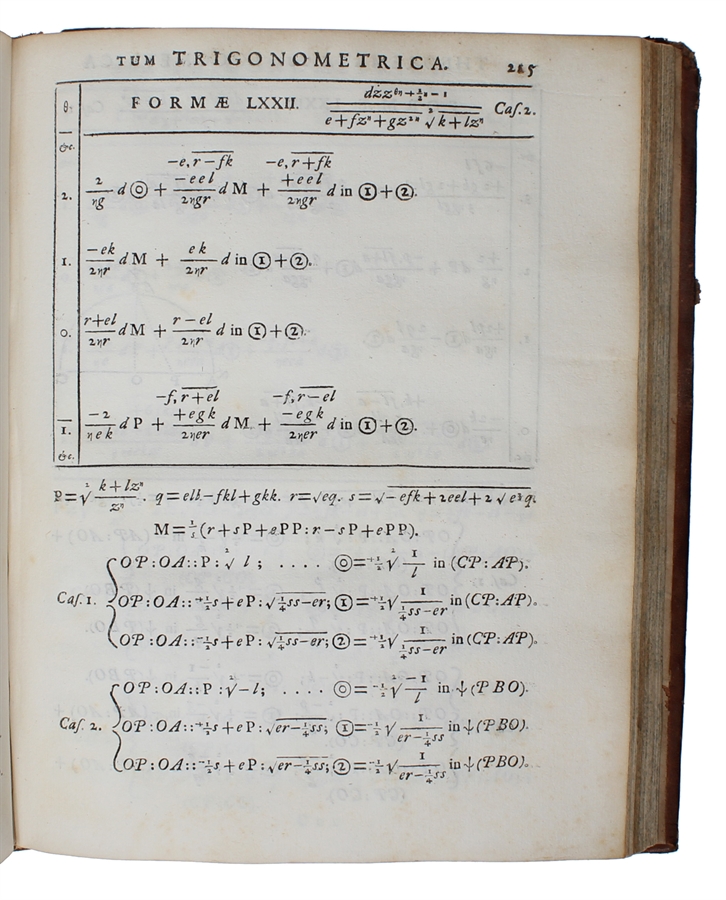 TUM TRIGONOMETRICA. 285
θ. FORMÆ LXXII. dżz^θη+½η−1 / e+fz^η+gz^2η ²√k+lz^η Caſ. 2.
&c.
2. 2/ηg d⊚ + −e, r−fk −eel / 2ηgr dM + −e, r+fk +eel / 2ηgr d in ①+②.
1. −ek/2ηr dM + ek/2ηr d in ①+②.
0. r+el/2ηr dM + r−el/2ηr d in ①+②.
1. −2/ηek dP + −f, r+el +egk / 2ηer dM + −f, r−el −egk / 2ηer d in ①+②.
&c.
P=²√ k+lz^η / z^η . q=ell−fkl+gkk. r=√eq. s=√−efk+2eel+2√e³q.
M=1/s (r+sP+ePP:r−sP+ePP).
OP:OA::P:²√l; .... ⊚=+½²√1/l in (CP:AP).
Caſ. 1. OP:OA::+½s+eP:√¼ss−er; ①=+½√1/¼ss−er in (CP:AP).
OP:OA::−½s+eP:√¼ss−er; ②=+½√1/¼ss−er in (CP:AP).
OP:OA::P:²√−l; .... ⊚=−½²√−1/l in ψ (PBO).
Caſ. 2. OP:OA::+½s+eP:√er−¼ss; ①=−½√1/er−¼ss in ψ (PBO).
OP:OA::−½s+eP:√er−¼ss; ②=−½√1/er−¼ss in ψ (PBO).